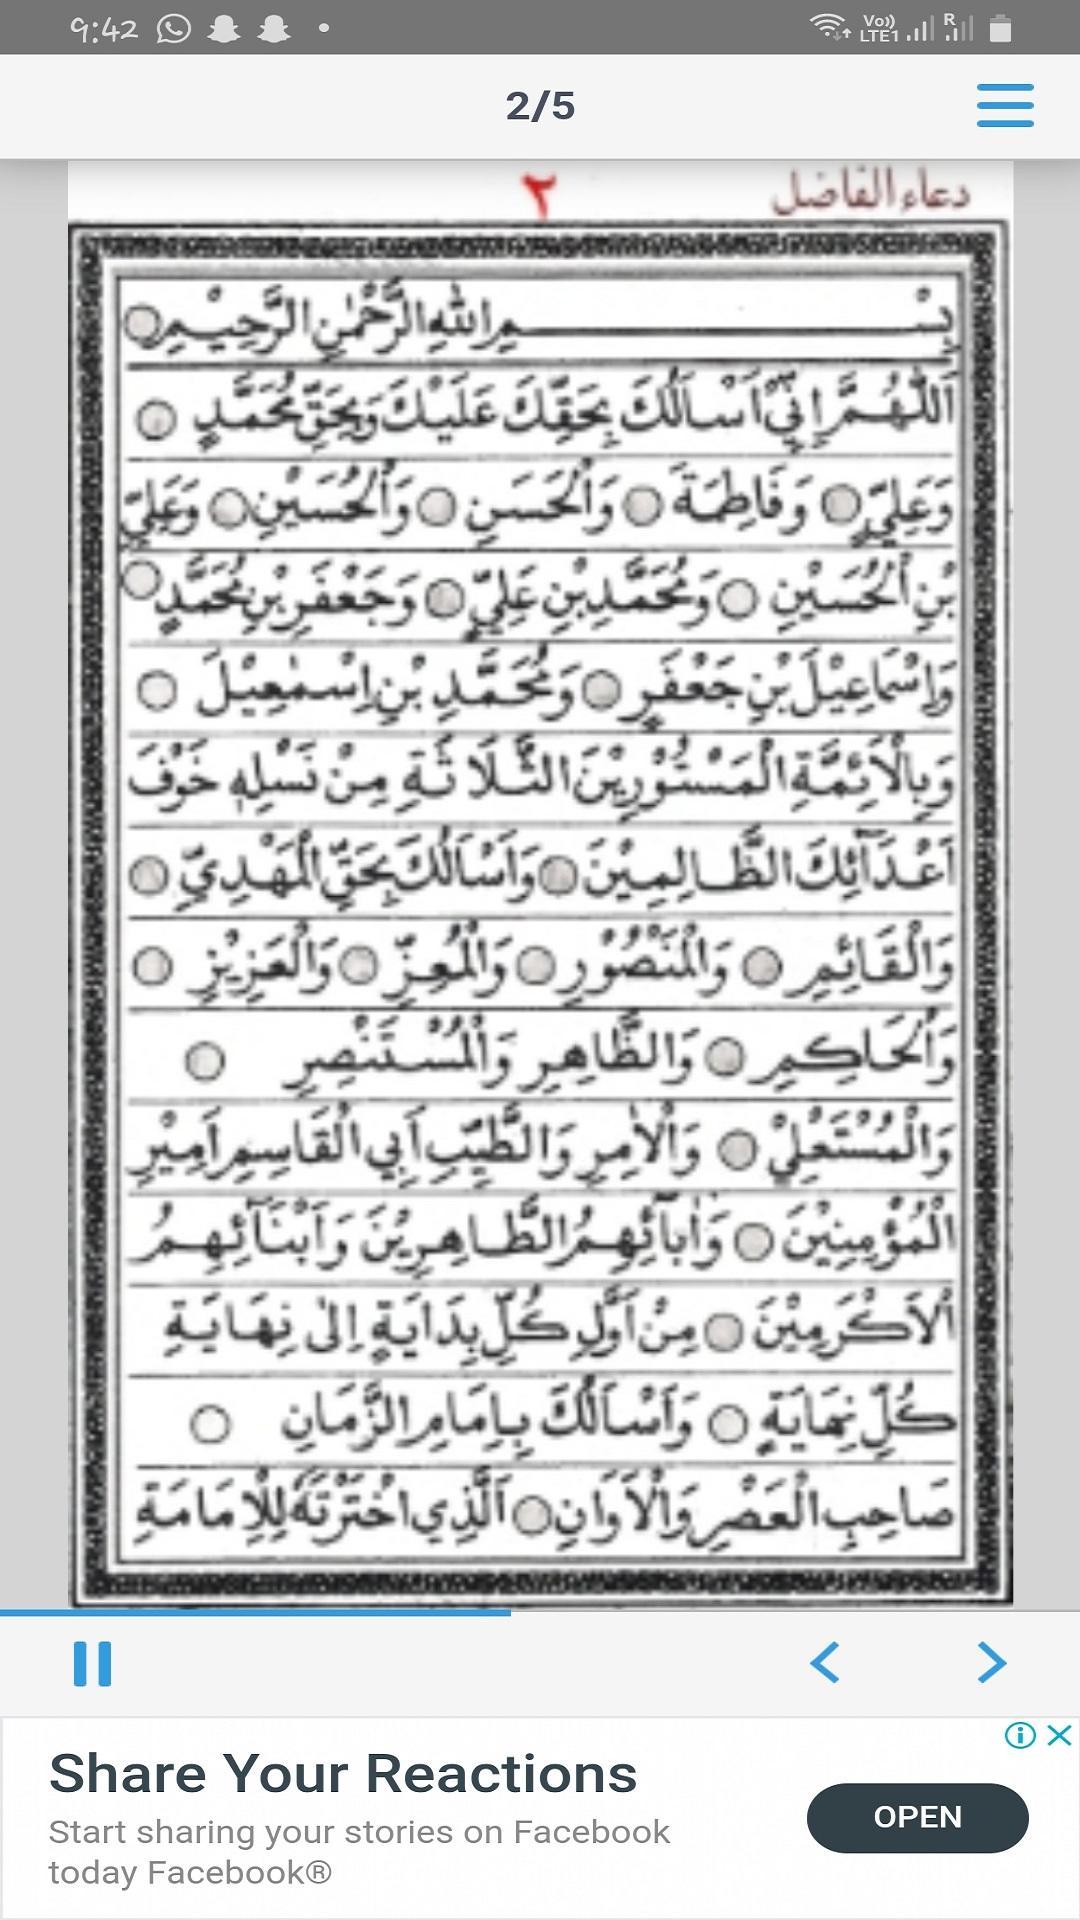 9:42
Vo)) LTE1 R
2/5
دعاء الفاضل
٢
بِسْمِ اللهِ الرَّحْمٰنِ الرَّحِيْمِ
اَللّٰهُمَّ اِنِّيْ اَسْاَلُكَ بِحَقِّكَ عَلَيْكَ وَبِحَقِّ مُحَمَّدٍ
وَعَلِيٍّ وَفَاطِمَةَ وَالْحَسَنِ وَالْحُسَيْنِ وَعَلِيِّ
بْنِ الْحُسَيْنِ وَمُحَمَّدِ بْنِ عَلِيٍّ وَجَعْفَرِ بْنِ مُحَمَّدٍ
وَاِسْمَاعِيْلَ بْنِ جَعْفَرٍ وَمُحَمَّدِ بْنِ اِسْمٰعِيْلَ
وَبِالْاَئِمَّةِ الْمَسْتُوْرِيْنَ الثَّلَاثَةِ مِنْ نَسْلِهٖ خَوْفَ
اَعْدَآئِكَ الظَّالِمِيْنَ وَاَسْاَلُكَ بِحَقِّ الْمَهْدِيِّ
وَالْقَائِمِ وَالْمَنْصُوْرِ وَالْمُعِزِّ وَالْعَزِيْزِ
وَالْحَاكِمِ وَالظَّاهِرِ وَالْمُسْتَنْصِرِ
وَالْمُسْتَعْلِيْ وَالْاٰمِرِ وَالطَّيِّبِ اَبِي الْقَاسِمِ اَمِيْرِ
الْمُؤْمِنِيْنَ وَاٰبَآئِهِمُ الطَّاهِرِيْنَ وَاَبْنَآئِهِمُ
الْاَكْرَمِيْنَ مِنْ اَوَّلِ كُلِّ بِدَايَةٍ اِلٰى نِهَايَةِ
كُلِّ نِهَايَةٍ وَاَسْاَلُكَ بِاِمَامِ الزَّمَانِ
صَاحِبِ الْعَصْرِ وَالْاَوَانِ اَلَّذِي اخْتَرْتَهٗ لِلْاِمَامَةِ
Share Your Reactions
Start sharing your stories on Facebook
today Facebook®
OPEN